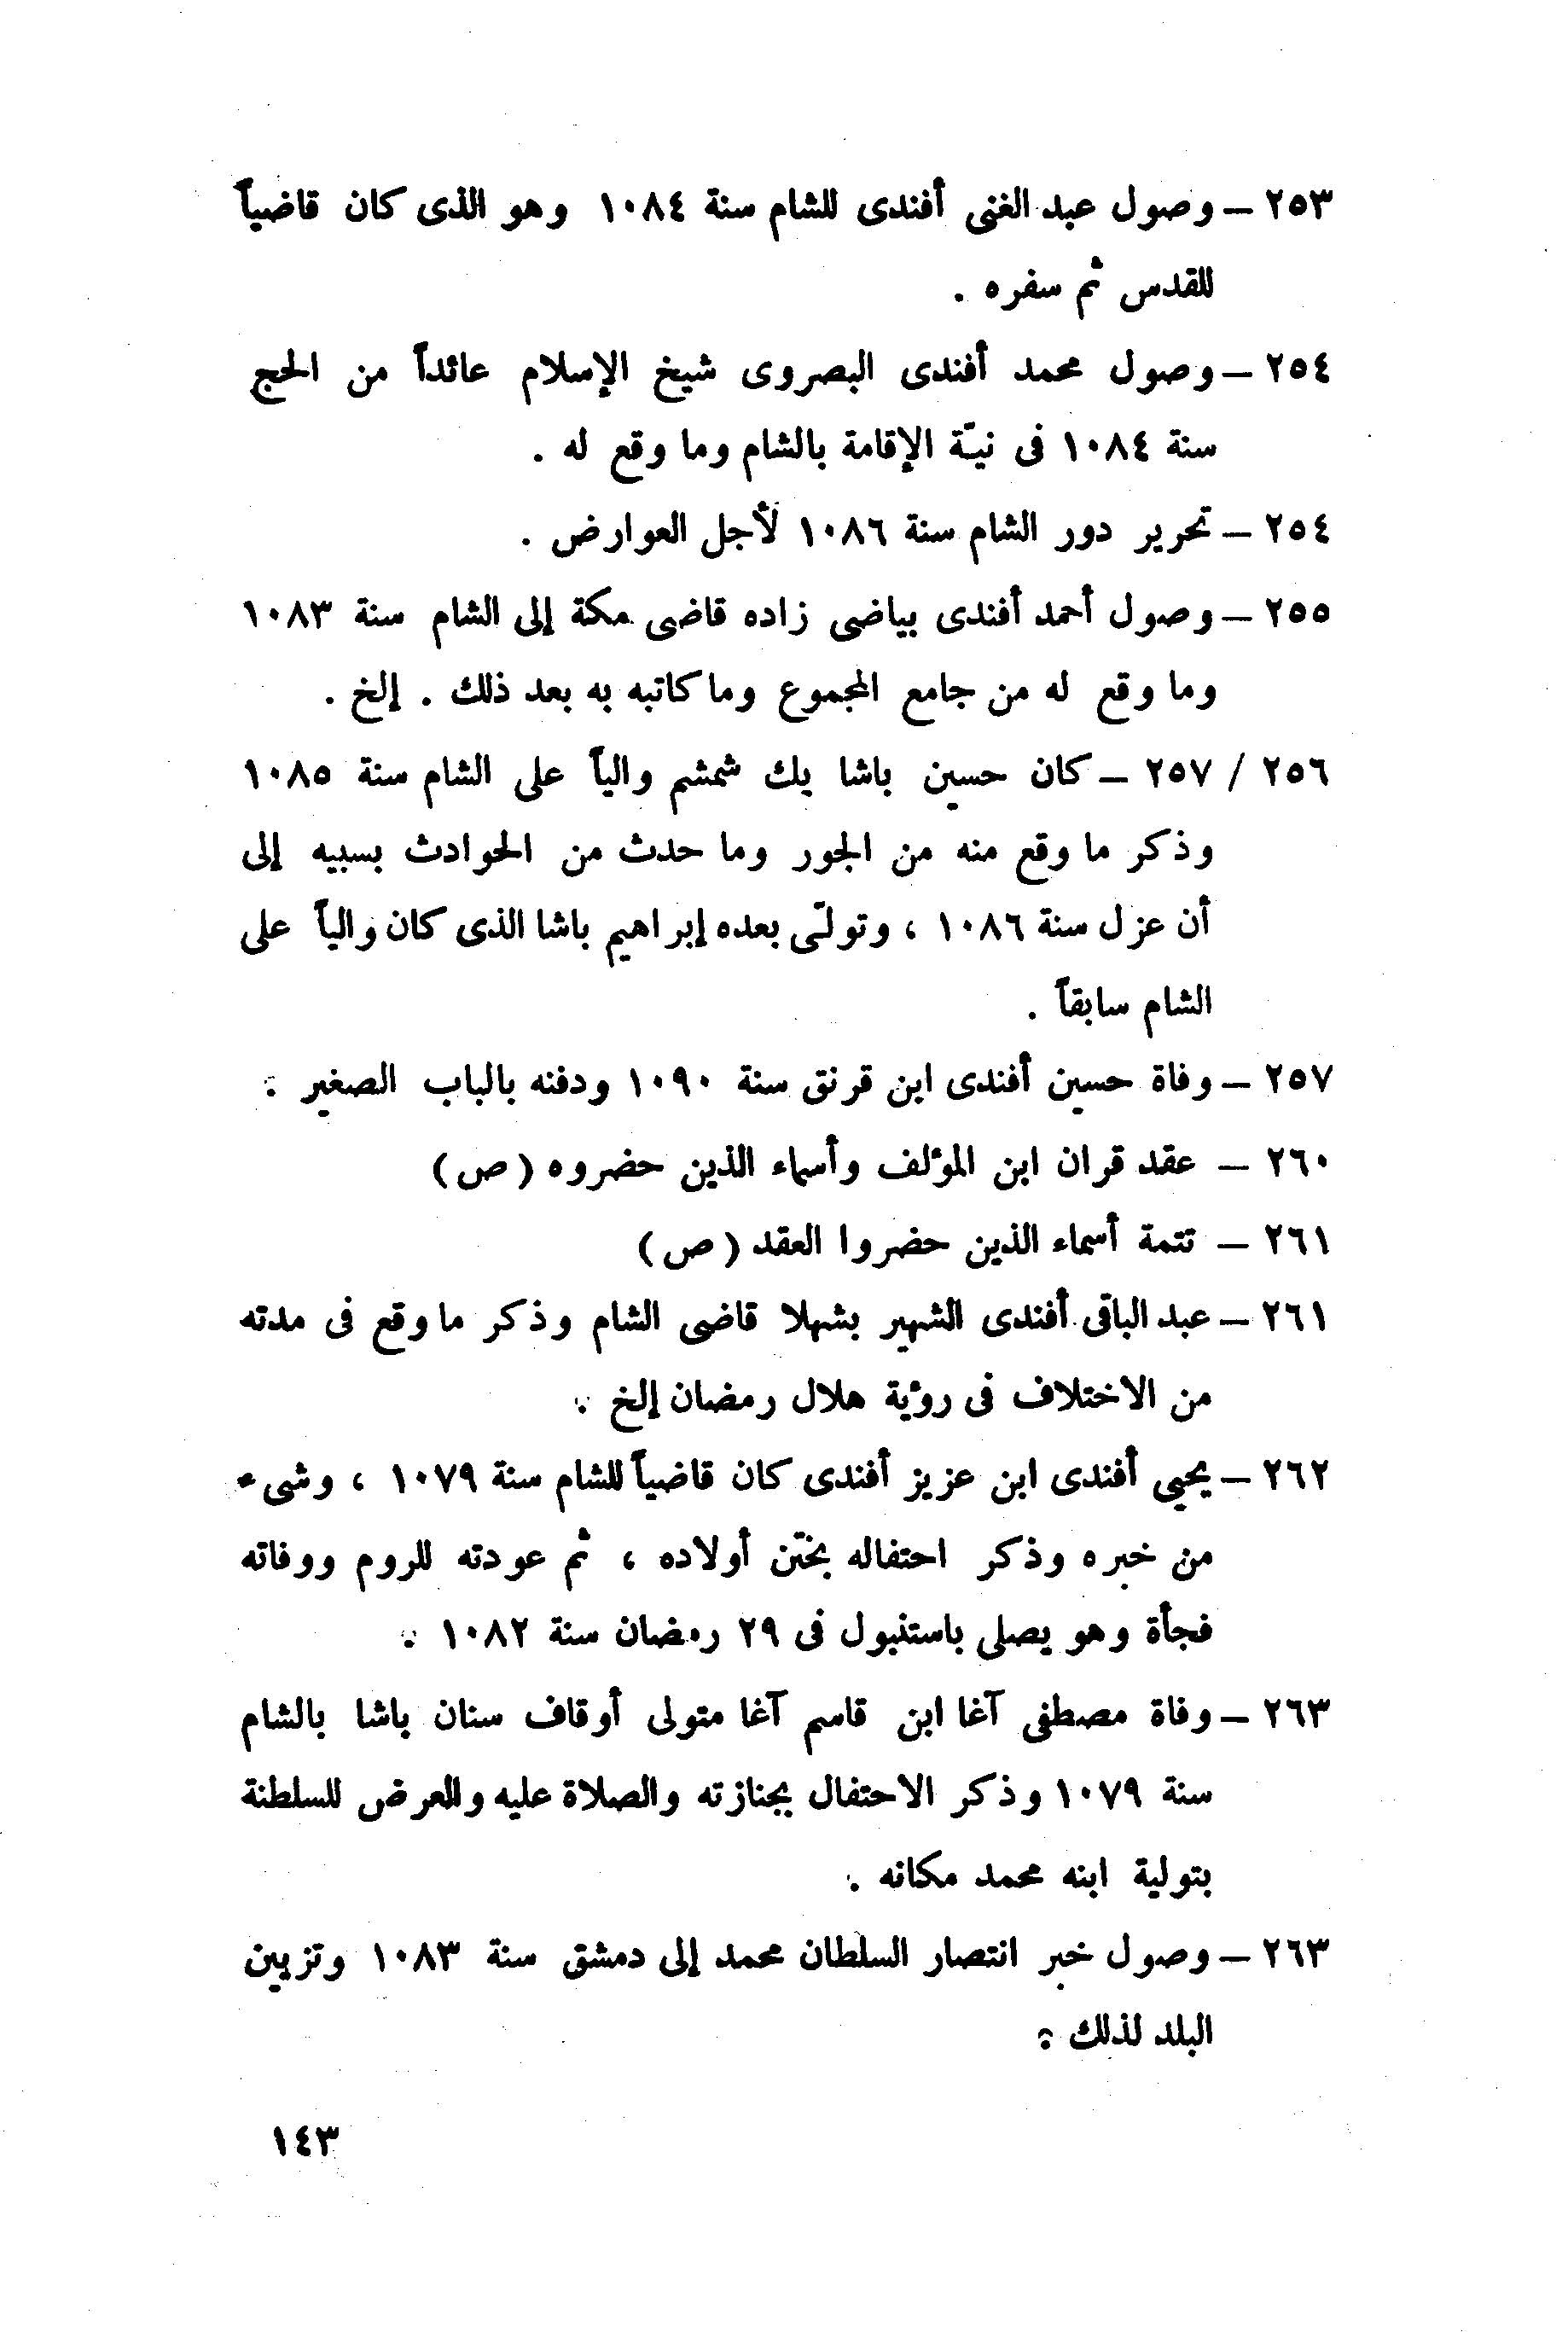 ٢٥٣ – وصول عبد الغنى أفندى للشام سنة ١٠٨٤ وهو الذى كان قاضياً
للقدس ثم سفره .
٢٥٤ – وصول محمد أفندى البصروى شيخ الإسلام عائداً من الحج
سنة ١٠٨٤ فى نيّة الإقامة بالشام وما وقع له .
٢٥٤ – تحرير دور الشام سنة ١٠٨٦ لأجل العوارض .
٢٥٥ – وصول أحمد أفندى بياضى زاده قاضى مكة إلى الشام سنة ١٠٨٣
وما وقع له من جامع المجموع وما كاتبه به بعد ذلك . إلخ .
٢٥٦ / ٢٥٧ – كان حسين باشا يك شمشم والياً على الشام سنة ١٠٨٥
وذكر ما وقع منه من الجور وما حدث من الحوادث بسببه إلى
أن عزل سنة ١٠٨٦ ، وتولّى بعده إبراهيم باشا الذى كان والياً على
الشام سابقاً .
٢٥٧ – وفاة حسين أفندى ابن قرنق سنة ١٠٩٠ ودفنه بالباب الصغير .
٢٦٠ – عقد قران ابن المؤلف وأسماء الذين حضروه ( ص )
٢٦١ – تتمة أسماء الذين حضروا العقد ( ص )
٢٦١ – عبد الباقى أفندى الشهير بشهلا قاضى الشام وذكر ما وقع فى مدته
من الاختلاف فى رؤية هلال رمضان إلخ .
٢٦٢ – يحيى أفندى ابن عزيز أفندى كان قاضياً للشام سنة ١٠٧٩ ، وشىء
من خبره وذكر احتفاله بختن أولاده ، ثم عودته للروم ووفاته
فجأة وهو يصلى باستنبول فى ٢٩ رمضان سنة ١٠٨٢ .
٢٦٣ – وفاة مصطفى آغا ابن قاسم آغا متولى أوقاف سنان باشا بالشام
سنة ١٠٧٩ وذكر الاحتفال بجنازته والصلاة عليه والعرض للسلطنة
بتولية ابنه محمد مكانه .
٢٦٣ – وصول خبر انتصار السلطان محمد إلى دمشق سنة ١٠٨٣ وتزيين
البلد لذلك .
١٤٣